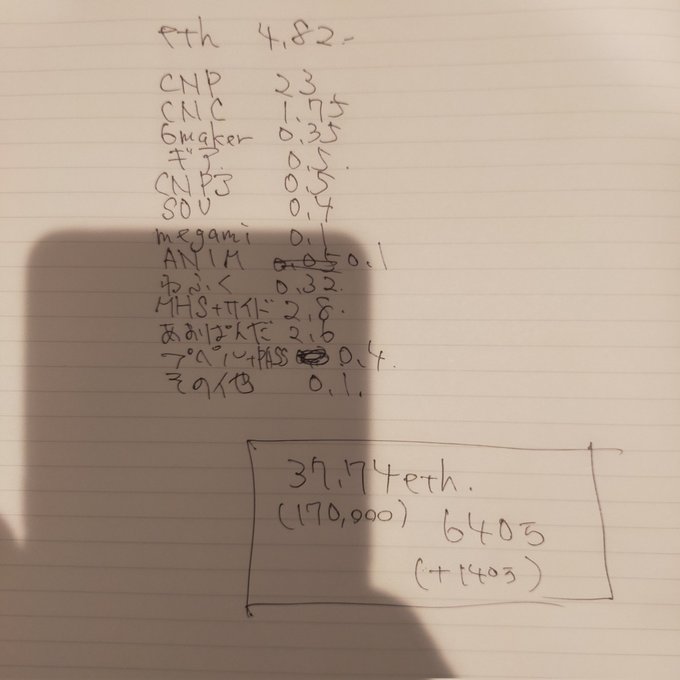 eth 4.82-
CNP 23
CNC 1.75
Gmaker 0.35
ギア 0.5.
CNPJ 0.5
SOU 0.4
megami 0.1
ANIM 0.05 0.1
わふく 0.32.
MHS+サイド 2.8.
あおぱんだ 2.6
プペル+PASS 0.4.
その他 0.1.
37.74eth.
(170,000) 640万
(+140万)